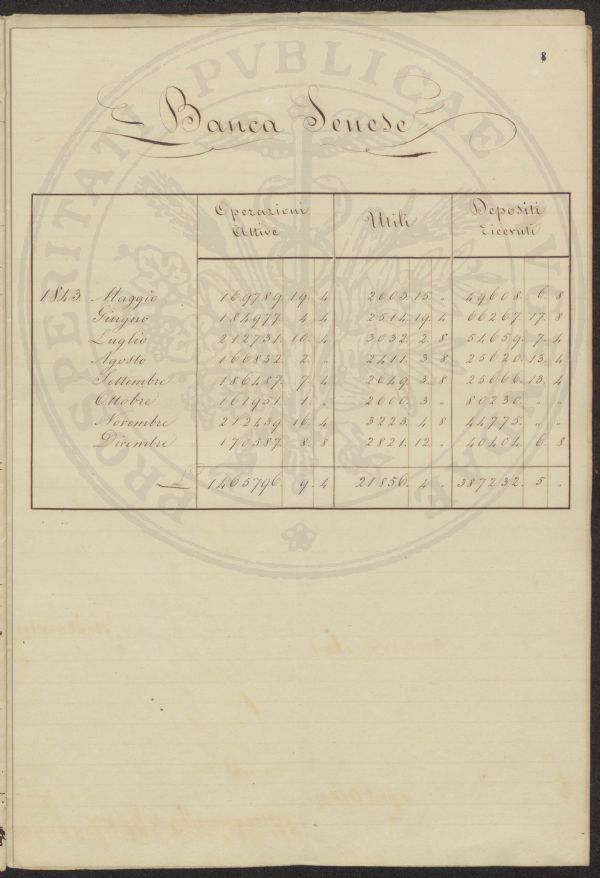 8
Banca Senese
Operazioni Attive	Utili	Depositi ricevuti
1843. Maggio	169789. 19. 4	2603. 15. „	49608. 6. 8
Giugno	184977. 4. 4	2514. 19. 4	66267. 17. 8
Luglio	212731. 10. 4	3032. 2. 8	54659. 7. 4
Agosto	166832. 2. „	2411. 3. 8	25620. 13. 4
Settembre	186487. 7. 4	2649. 3. 8	25666. 13. 4
Ottobre	161951. 1. „	2600. 3. „	80230. „ „
Novembre	212439. 16. 4	3223. 4. 8	44775. „ „
Dicembre	170587. 8. 8	2821. 12. „	40404. 6. 8
1465796. 9. 4	21856. 4 „	387232. 5 „
PROSPERITATI PVBLICAE